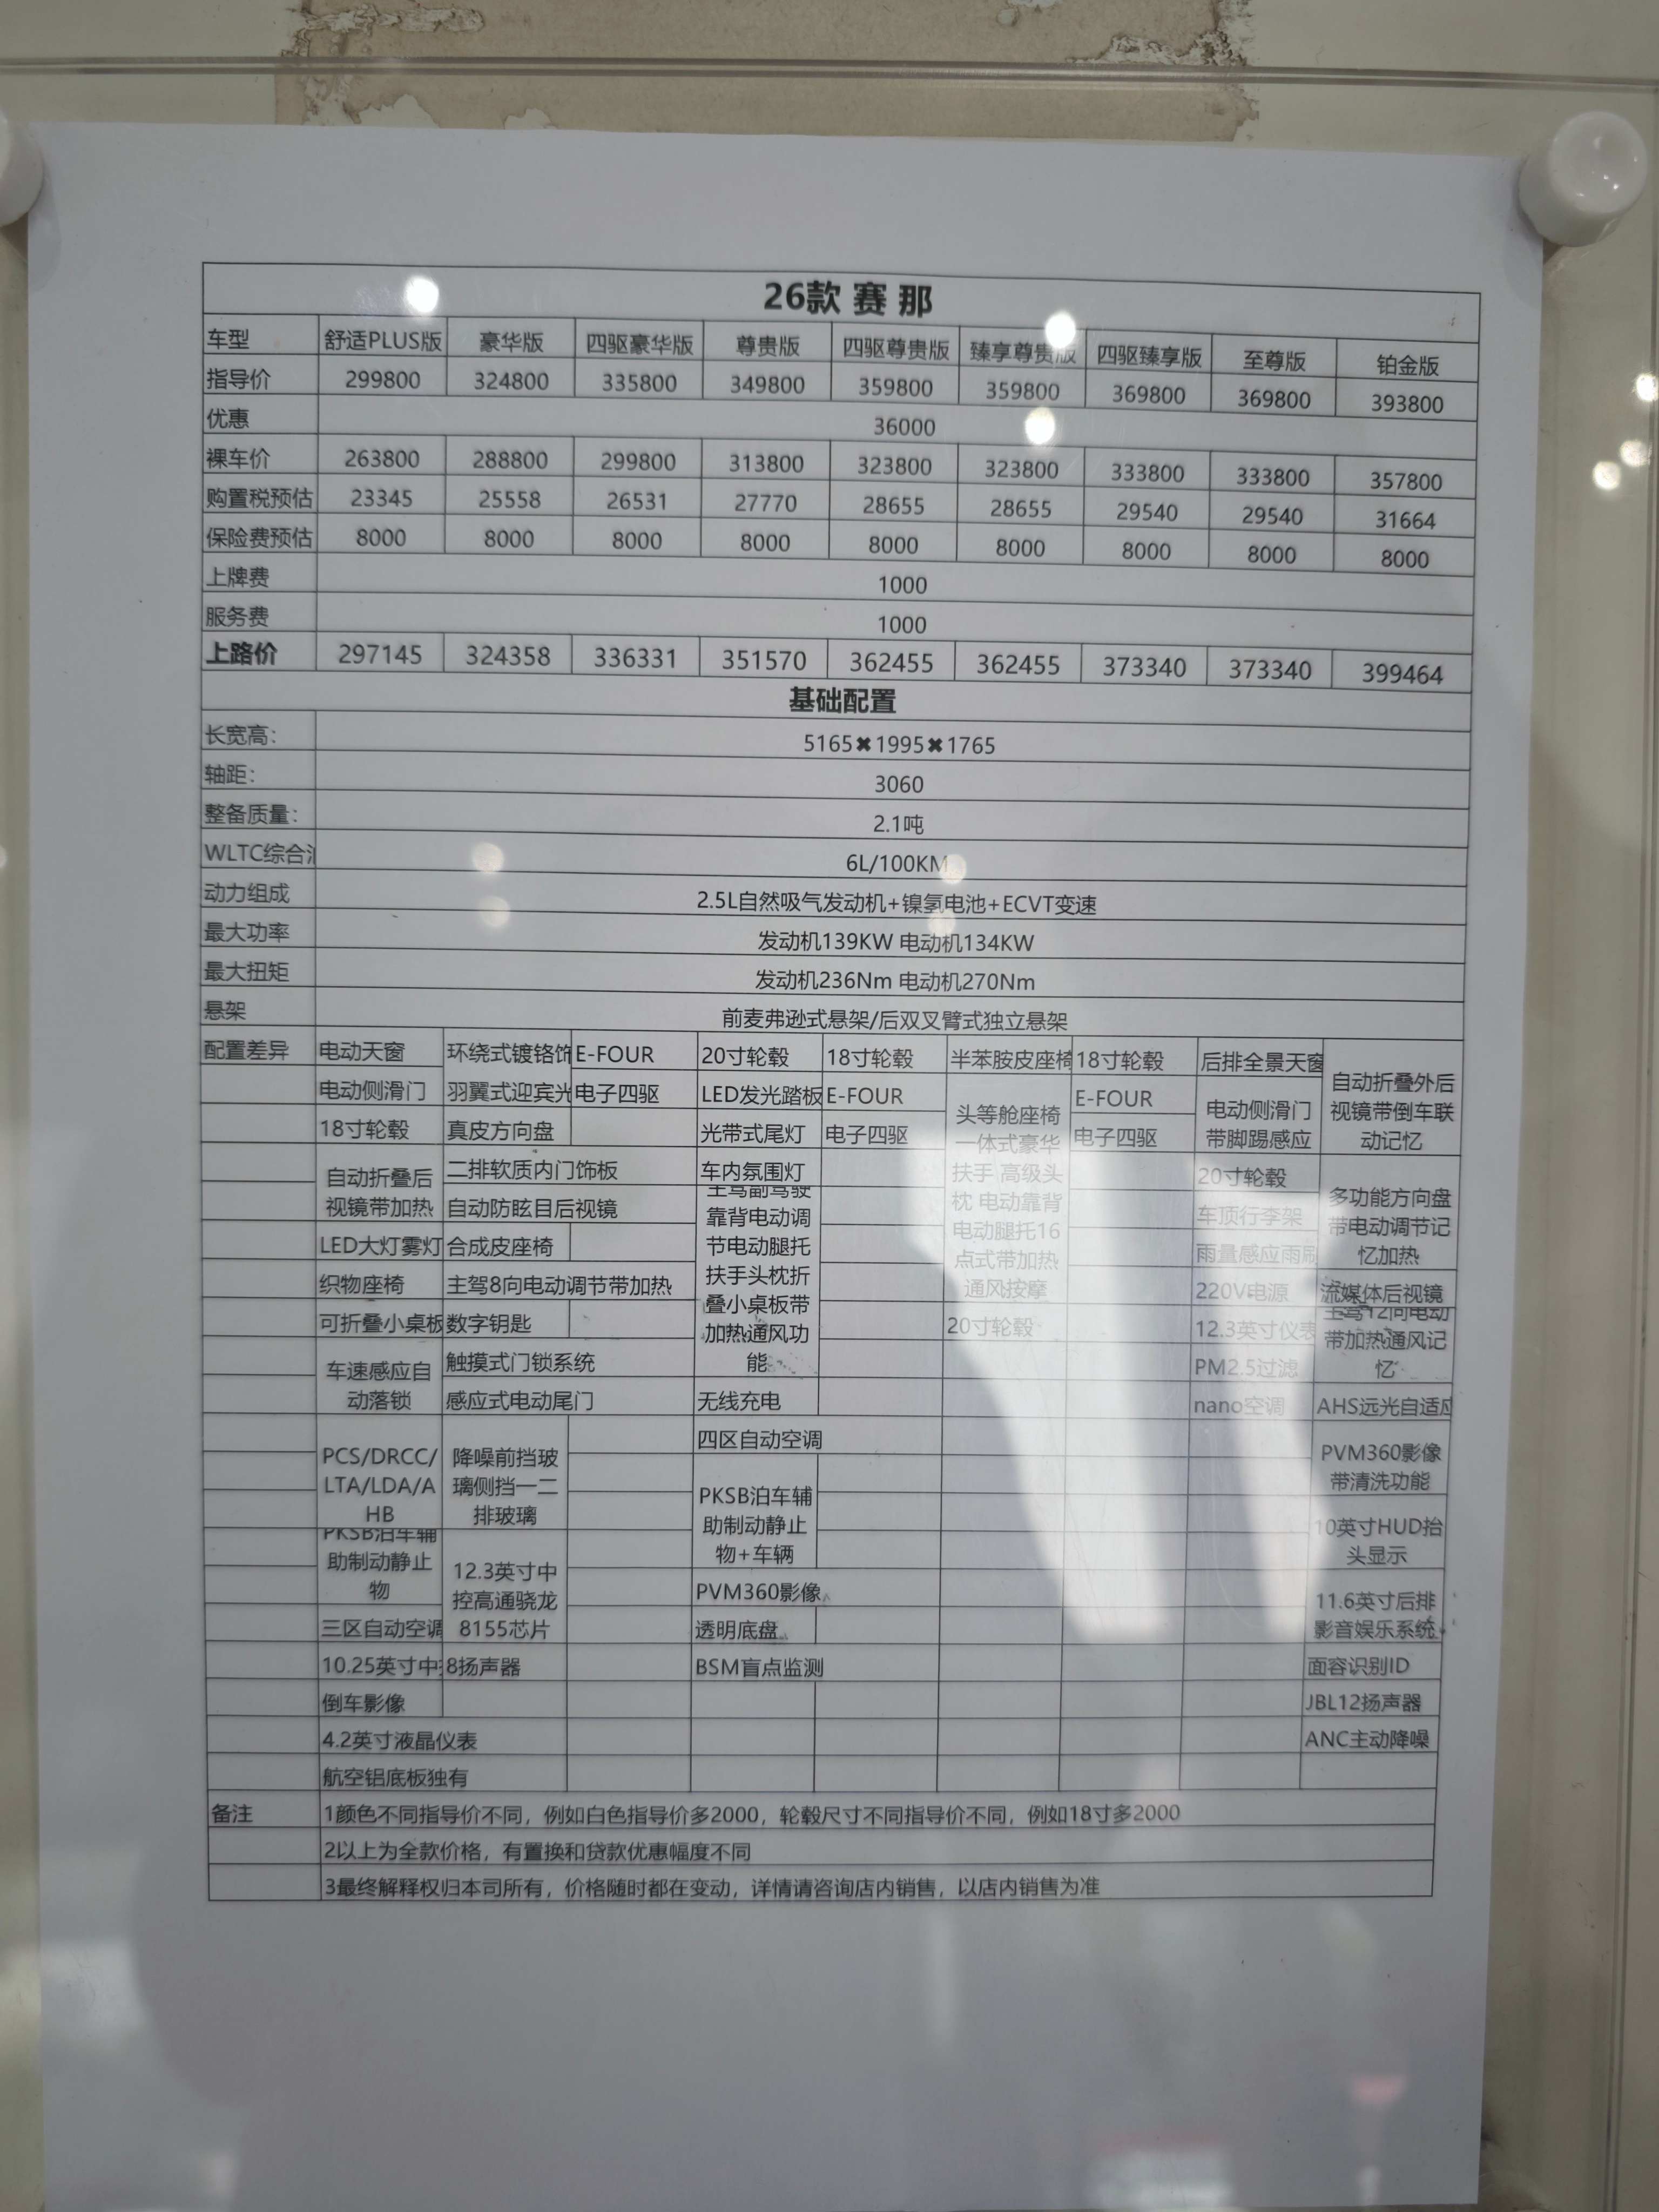 26款 赛 那
车型 舒适PLUS版 豪华版 四驱豪华版 尊贵版 四驱尊贵版 臻享尊贵版 四驱臻享版 至尊版 铂金版
指导价 299800 324800 335800 349800 359800 359800 369800 369800 393800
优惠 36000
裸车价 263800 288800 299800 313800 323800 323800 333800 333800 357800
购置税预估 23345 25558 26531 27770 28655 28655 29540 29540 31664
保险费预估 8000 8000 8000 8000 8000 8000 8000 8000 8000
上牌费 1000
服务费 1000
上路价 297145 324358 336331 351570 362455 362455 373340 373340 399464
基础配置
长宽高： 5165✖1995✖1765
轴距： 3060
整备质量： 2.1吨
WLTC综合 6L/100KM
动力组成 2.5L自然吸气发动机+镍氢电池+ECVT变速
最大功率 发动机139KW 电动机134KW
最大扭矩 发动机236Nm 电动机270Nm
悬架 前麦弗逊式悬架/后双叉臂式独立悬架
配置差异
电动天窗
电动侧滑门
18寸轮毂
自动折叠后
视镜带加热
LED大灯雾灯
织物座椅
可折叠小桌板
车速感应自
动落锁
PCS/DRCC/
LTA/LDA/A
HB
PKSB泊车辅
助制动静止
物
三区自动空调
10.25英寸中
倒车影像
4.2英寸液晶仪表
航空铝底板独有
环绕式镀铬饰
羽翼式迎宾光
真皮方向盘
二排软质内门饰板
自动防眩目后视镜
合成皮座椅
主驾8向电动调节带加热
数字钥匙
触摸式门锁系统
感应式电动尾门
降噪前挡玻
璃侧挡一二
排玻璃
12.3英寸中
控高通骁龙
8155芯片
8扬声器
E-FOUR
电子四驱
20寸轮毂
LED发光踏板
光带式尾灯
车内氛围灯
主驾副驾驶
靠背电动调
节电动腿托
扶手头枕折
叠小桌板带
加热通风功
能
无线充电
四区自动空调
PKSB泊车辅
助制动静止
物+车辆
PVM360影像
透明底盘
BSM盲点监测
18寸轮毂
E-FOUR
电子四驱
半苯胺皮座椅
头等舱座椅
一体式豪华
扶手 高级头
枕 电动靠背
电动腿托16
点式带加热
通风按摩
20寸轮毂
18寸轮毂
E-FOUR
电子四驱
后排全景天窗
电动侧滑门
带脚踢感应
20寸轮毂
车顶行李架
雨量感应雨刷
220V电源
12.3英寸仪表
PM2.5过滤
nano空调
自动折叠外后
视镜带倒车联
动记忆
多功能方向盘
带电动调节记
忆加热
流媒体后视镜
主驾12向电动
带加热通风记
忆
AHS远光自适应
PVM360影像
带清洗功能
10英寸HUD抬
头显示
11.6英寸后排
影音娱乐系统
面容识别ID
JBL12扬声器
ANC主动降噪
备注 1颜色不同指导价不同，例如白色指导价多2000，轮毂尺寸不同指导价不同，例如18寸多2000
2以上为全款价格，有置换和贷款优惠幅度不同
3最终解释权归本司所有，价格随时都在变动，详情请咨询店内销售，以店内销售为准